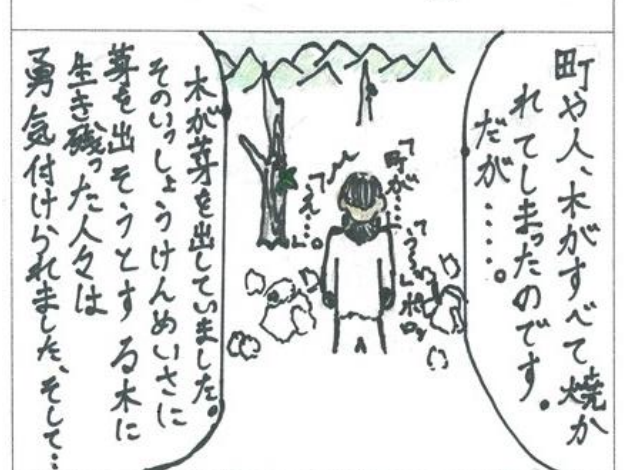 町や人、木がすべて焼か
れてしまったのです。
だが‥‥。
「う〜」ポロッ
「町が‥‥」
「え‥‥」。
木が芽を出していました。
そのいっしょうけんめいさに
芽を出そうとする木に
生き残った人々は
勇気付けられました、そして‥‥